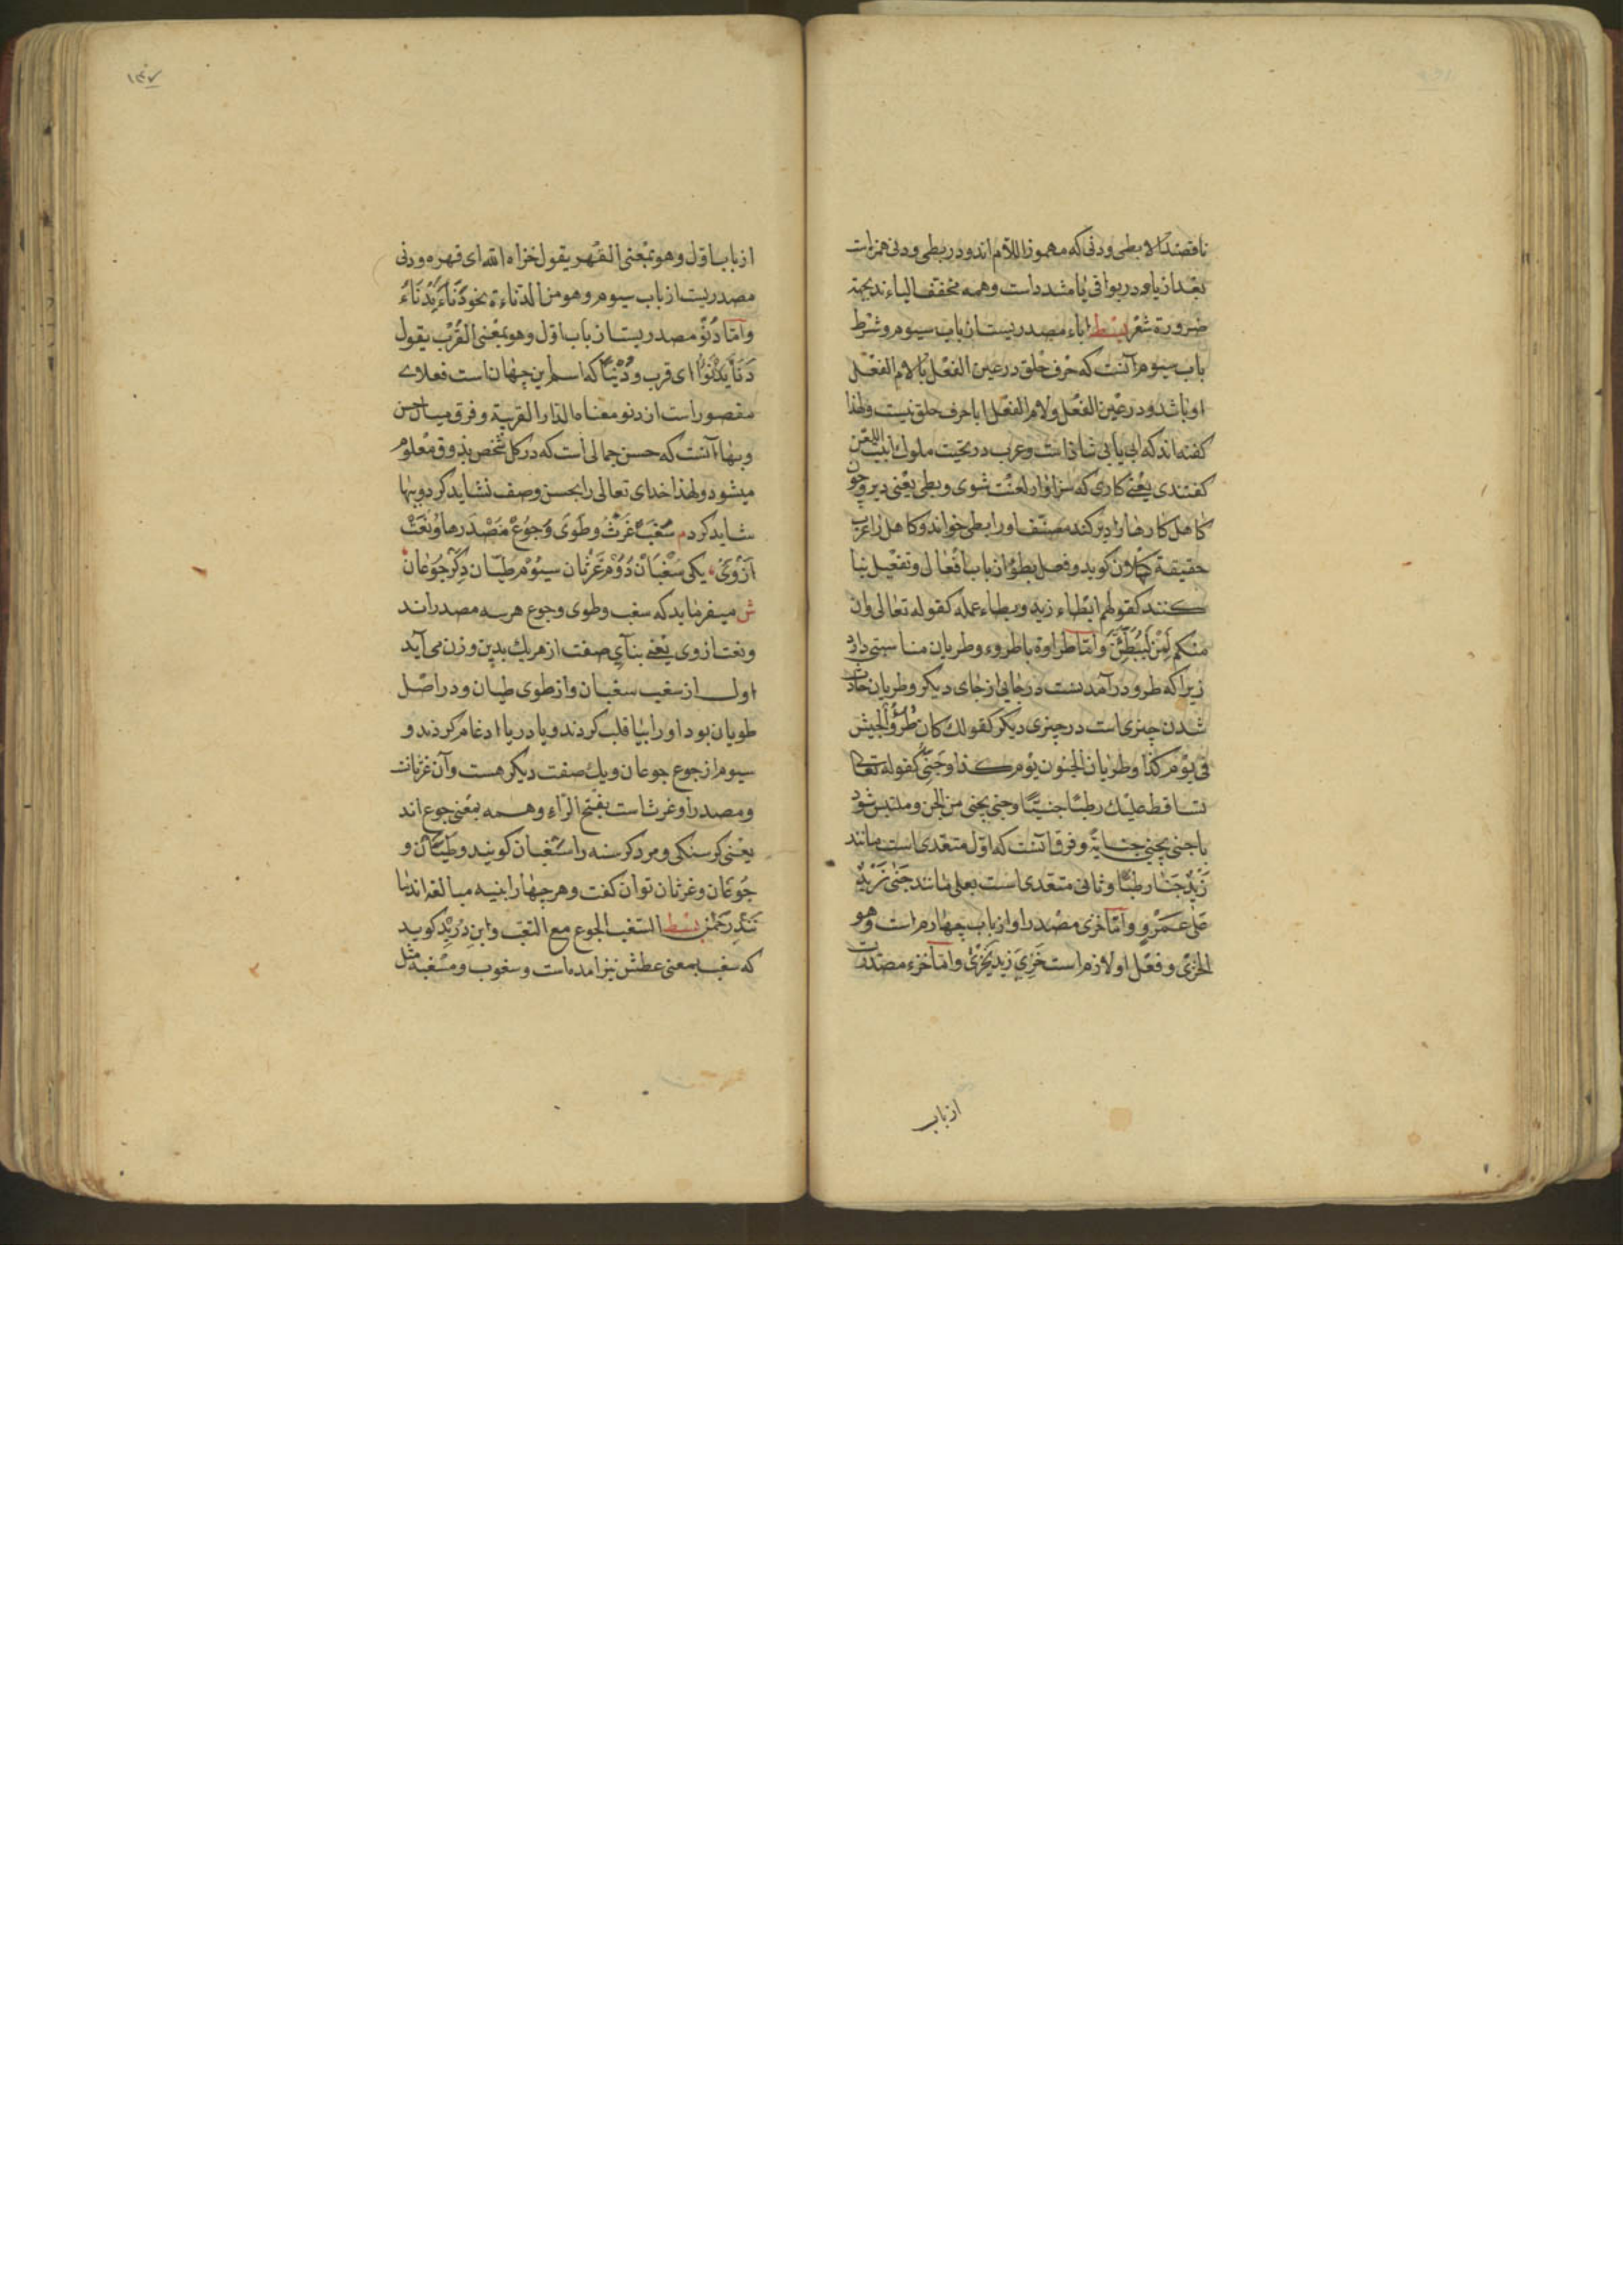 ناقصند الا بطی ودنی که مهموز اللام اند ودر بطی ودنی همزه است
بعد از یا ودر بواقی یا مشدد است وهمه مخفف الیاء ند بجهة
ضرورة شعر بسط اباء مصدریست از باب سیوم وشرط
باب سیوم آنست که حرف حلق در عین الفعل یا لام الفعل
او باشد ودر عین الفعل ولام الفعل ابا حرف حلق نیست ولهذا
کفته اند که ابی یابی شاذ است وعرب در تحیت ملوک ابیت اللعن
کفتندی یعنی کاری که سزاوار لعنت شوی وبطی یعنی دیر وچون
کاهل کارها را دیر کند مصنف او را بطی خواند وکاهل را عرب
حقیقة کهلان کوید وفعل بطؤ از باب افعال وتفعیل بنا
کنند کقولهم ابطاء زید وبطاء عمله کقوله تعالی وان
منکم لمن لیبطئن واما طراوة با طروء وطریان مناسبتی دارد
زیرا که طرو درآمدنست در جایی از جای دیکر وطریان حادث
شدن چیزی است در چیزی دیکر کقولک کان طرؤ الجیش
فی یوم کذا وطریان الجنون یوم کذا وجنی کقوله تعالی
تساقط علیک رطبا جنیا وجنی یجنی من الجن وملتبس شود
با جنی یجنی جنایة وفرق آنست که اول متعدی است مانند
زید جنا رطبا وثانی متعدی است بعلی مانند جنی زید
علی عمرو واما خزی مصدر او از باب چهارم است وهو
الخزی وفعل او لازم است خزی زید یخزی واما خزء مصدریست
از باب
۱۳۷
از باب اول وهو بمعنی القهر یقول خزاه الله ای قهره ودنی
مصدریست از باب سیوم وهو من الدناءة نحو دناء یدناء
واما دنو مصدریست از باب اول وهو بمعنی القرب یقول
دنا یدنوا ای قرب ودنیا که اسم این جهان است فعلای
مقصور است از دنو معناه الدار القریبة وفرق میان حسن
وبها آنست که حسن جمالی است که در کل شخص بذوق معلوم
میشود ولهذا خدای تعالی را بحسن وصف نشاید کرد وببها
شاید کرد م سغب غرث وطوی وجوع مصدرها ونعت
ازوی یکی سغبان دوم غرثان سیوم طیان دکر جوعان
ش میفرماید که سغب وطوی وجوع هر سه مصدر اند
ونعت ازوی یعنی بنآی صفت از هر یک بدین وزن می آید
اول از سغب سغبان واز طوی طیان ودر اصل
طویان بود او را بیا قلب کردند ویا در یا ادغام کردند و
سیوم از جوع جوعان ویک صفت دیکر هست وآن غرثانست
ومصدر او غرث است بفتح الراء وهمه بمعنی جوع اند
یعنی کرسنکی ومرد کرسنه را سغبان کویند وطیان و
جوعان وغرثان توان کفت وهر چهار ابنیه مبالغه اند
بسط السغب الجوع مع التعب وابن درید کوید
که سغب بمعنی عطش نیز امده است وسغوب ومسغبة مثل